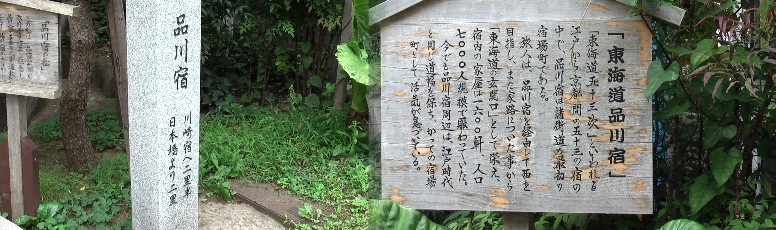 品川宿
川崎宿へ二里半
日本橋より二里
「東海道品川宿」
「東海道五十三次」といわれる
江戸から京都間の五十三の宿の
中で、品川宿は諸街道の最初の
宿場町である。
旅人は、品川宿を経由して西を
目指し、また家路についた事から
「東海道の玄関口」として栄え、
宿内の家屋一六〇〇軒、人口
七〇〇〇人規模で賑わっていた。
今でも品川宿周辺は、江戸時代
と同じ道幅を保ち、かつての宿場
町として活気が息づいている。